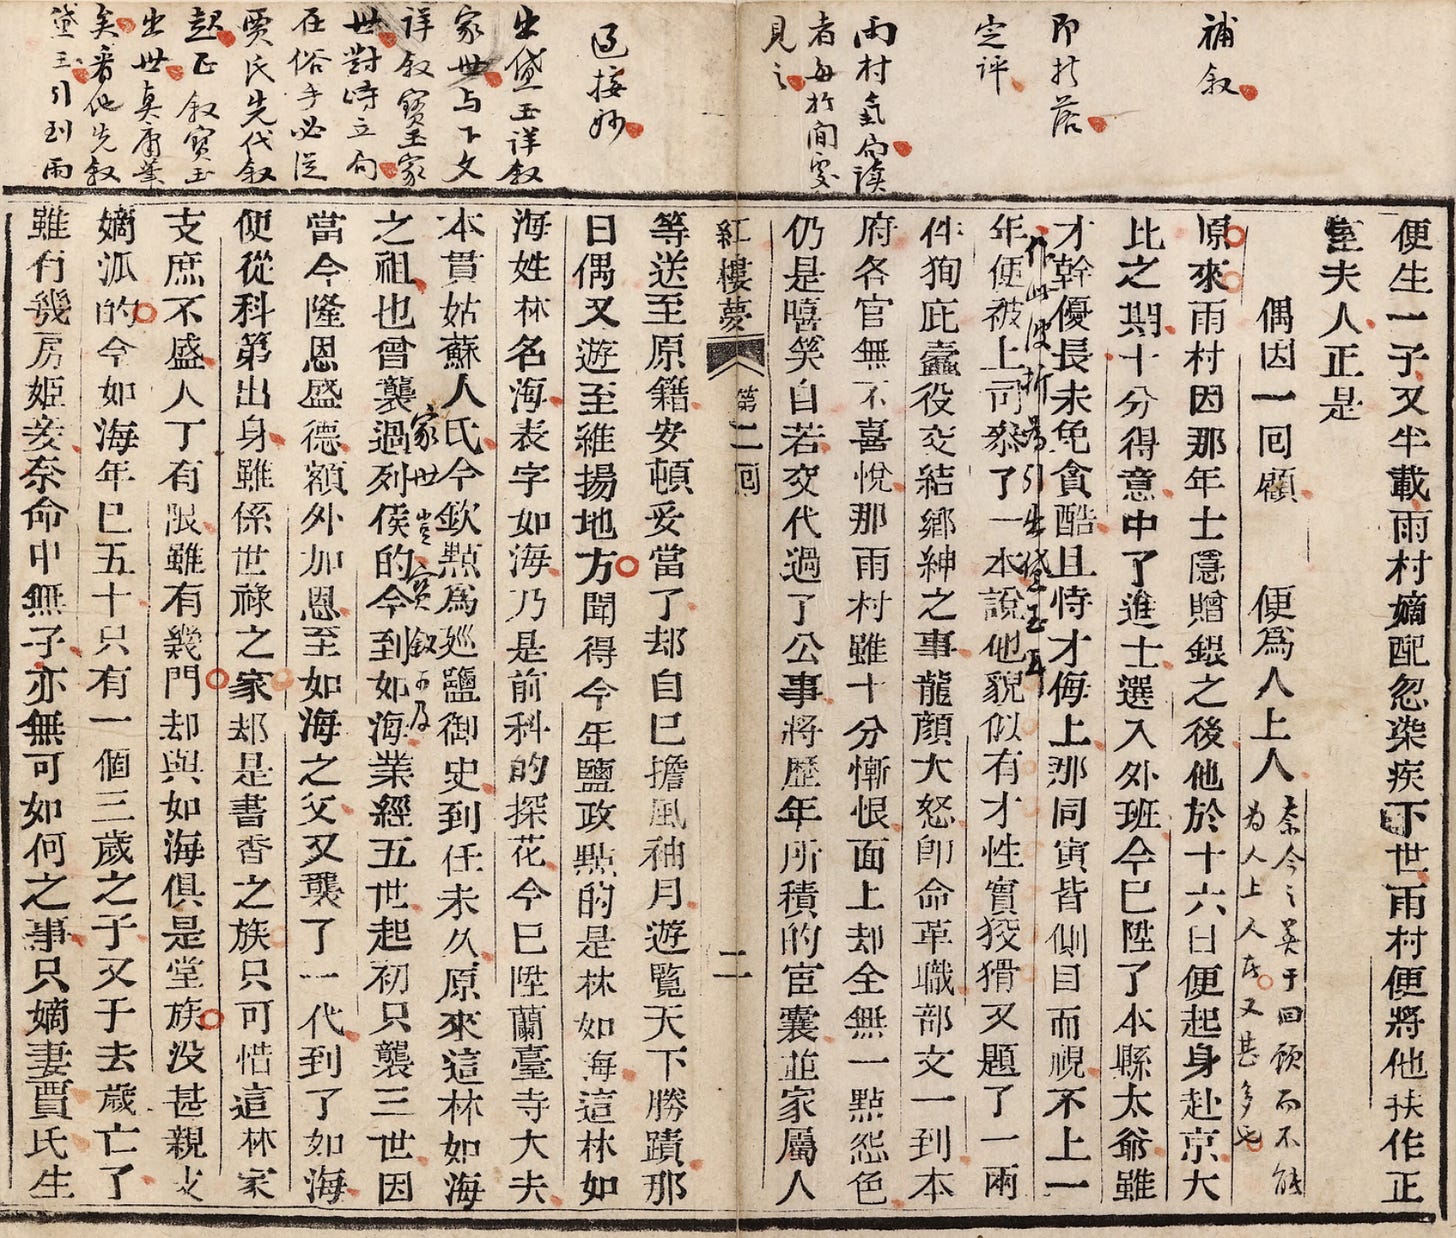 補叙
即折落
定評
雨村氣局讀
者每於閒處
見之
過接妙
出黛玉詳叙
家世与下文
詳叙寶玉家
世對峙立局
在俗手必從
賈氏先代叙
起正叙寶玉
出世真庸筆
矣看他先叙
黛玉引到雨
便生一子又半載雨村嫡配忽染疾下世雨村便將他扶作正
室夫人正是
偶因一回顧　便爲人上人
奈今之英于回顾而不能
为人上人者又甚多也
原來雨村因那年士隱贈銀之後他於十六日便起身赴京大
比之期十分得意中了進士選入外班今巳陞了本縣太爺雖
才幹優長未免貪酷且恃才侮上那同寅皆側目而視不上一
作此波折為引出黛玉耳
年便被上司叅了一本說他貌似有才性實狡猾又題了一兩
件狥庇蠹役交結鄉紳之事龍顏大怒卽命革職部文一到本
府各官無不喜悅那雨村雖十分慚恨面上却全無一點怨色
仍是嘻笑自若交代過了公事將歷年所積的宦囊並家屬人
紅樓夢　第二回　二
等送至原籍安頓妥當了却自巳擔風袖月遊覽天下勝蹟那
日偶又遊至維揚地方聞得今年鹽政點的是林如海這林如
海姓林名海表字如海乃是前科的探花今巳陞蘭臺寺大夫
本貫姑蘇人氏今欽點爲廵鹽御史到任未久原來這林如海
家世豈實叙可及
之祖也曾襲過列侯的今到如海業經五世起初只襲三世因
當今隆恩盛德額外加恩至如海之父又襲了一代到了如海
便從科第出身雖係世祿之家却是書香之族只可惜這林家
支庶不盛人丁有限雖有幾門却與如海俱是堂族没甚親支
嫡派的今如海年巳五十只有一個三歲之子又于去歲亡了
雖有幾房姬妾奈命中無子亦無可如何之事只嫡妻賈氏生